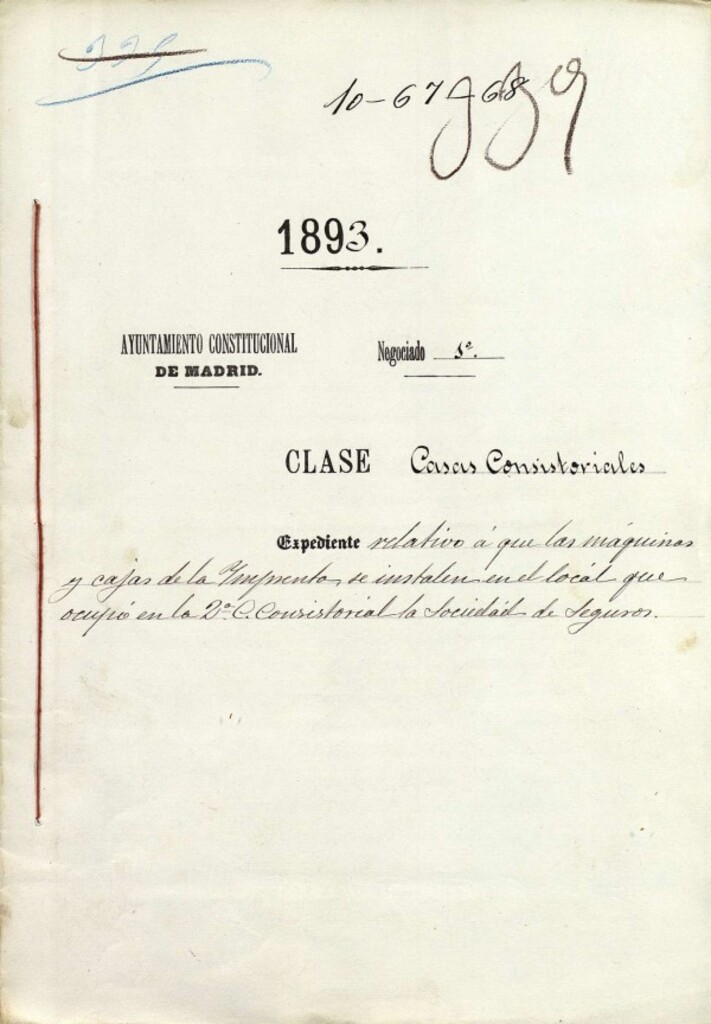 10-67-68
1893.
AYUNTAMIENTO CONSTITUCIONAL
DE MADRID.
Negociado
CLASE Casas Consistoriales
Expediente relativo á que las máquinas
y cajas de la Imprenta se instalen en el local que
ocupó en la 2ª C. Consistorial la Sociedad de Seguros.